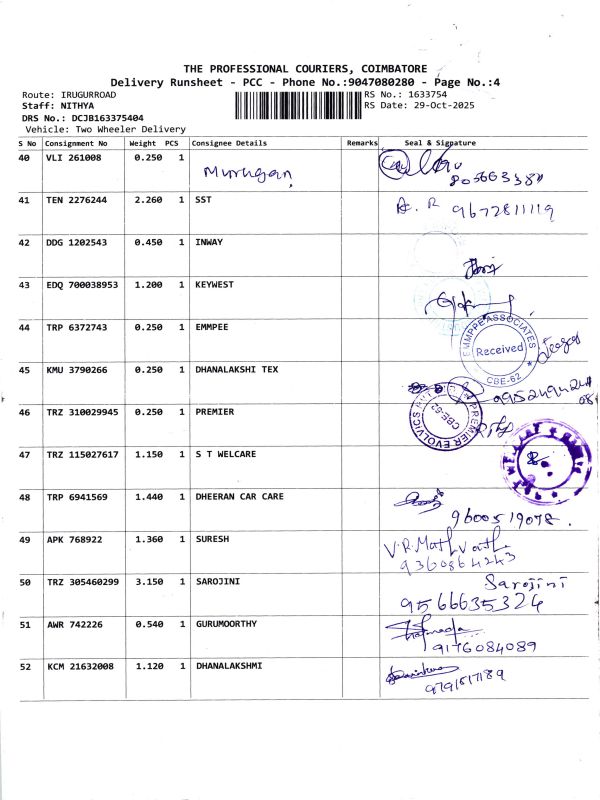 THE PROFESSIONAL COURIERS, COIMBATORE
Delivery Runsheet - PCC - Phone No.:9047080280 - Page No.:4
Route: IRUGURROAD RS No.: 1633754
Staff: NITHYA RS Date: 29-Oct-2025
DRS No.: DCJB163375404
Vehicle: Two Wheeler Delivery
S No Consignment No Weight PCS Consignee Details Remarks Seal & Signature
40 VLI 261008 0.250 1 Murugan,
41 TEN 2276244 2.260 1 SST A. R 9672811119
42 DDG 1202543 0.450 1 INWAY
43 EDQ 700038953 1.200 1 KEYWEST
44 TRP 6372743 0.250 1 EMMPEE
EMMPPE ASSOCIATES
Received
CBE-62
45 KMU 3790266 0.250 1 DHANALAKSHI TEX
46 TRZ 310029945 0.250 1 PREMIER
PREMIER EVOLVICS
CBE-62
47 TRZ 115027617 1.150 1 S T WELCARE
48 TRP 6941569 1.440 1 DHEERAN CAR CARE
9600519078.
49 APK 768922 1.360 1 SURESH V.R.
9360864243
50 TRZ 305460299 3.150 1 SAROJINI Sarojini
9566635324
51 AWR 742226 0.540 1 GURUMOORTHY
9176084089
52 KCM 21632008 1.120 1 DHANALAKSHMI
9791817189